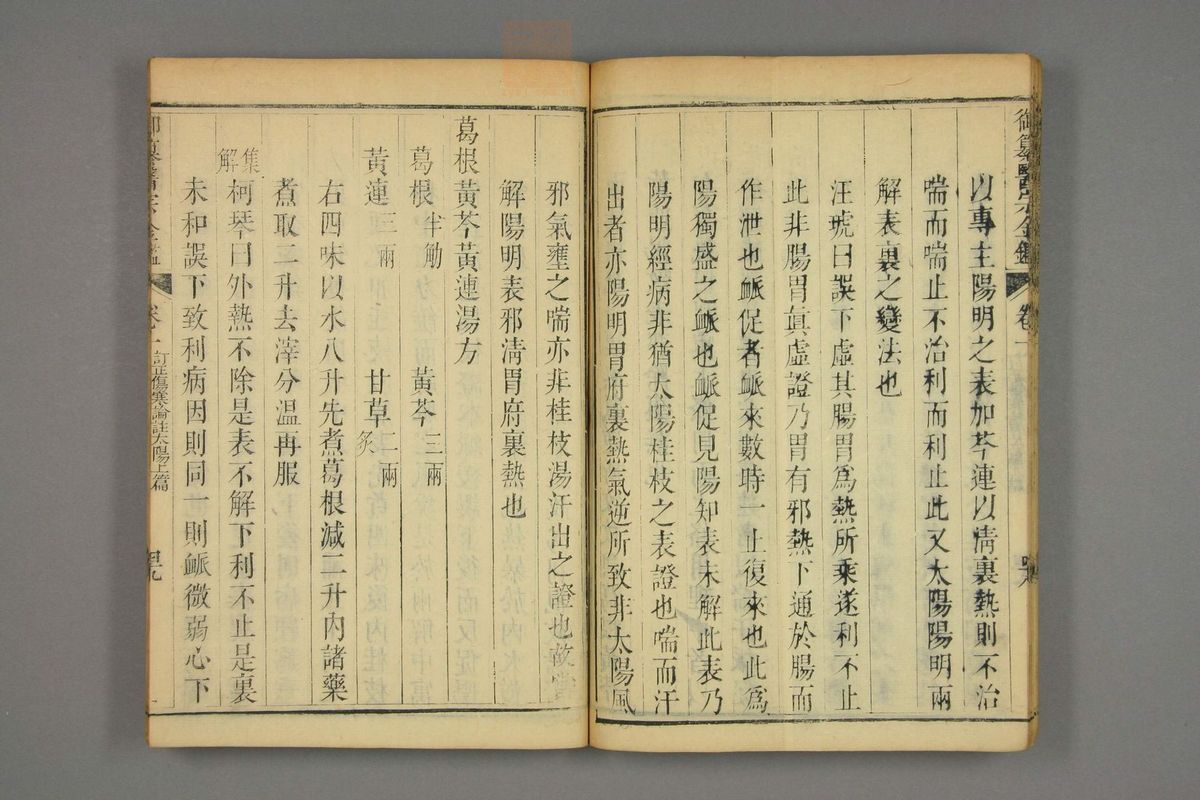 御纂醫宗金鑑
卷一
四八
以專主陽明之表加芩連以清裏熱則不治
喘而喘止不治利而利止此又太陽陽明兩
解表裏之變法也
汪琥曰誤下虛其腸胃爲熱所乘遂利不止
此非腸胃眞虛證乃胃有邪熱下通於腸而
作泄也脈促者脈來數時一止復來也此爲
陽獨盛之脈也脈促見陽知表未解此表乃
陽明經病非猶太陽桂枝之表證也喘而汗
出者亦陽明胃府裏熱氣逆所致非太陽風
邪氣壅之喘亦非桂枝湯汗出之證也故當
解陽明表邪清胃府裏熱也
葛根黃芩黃連湯方
葛根半觔 黃芩三兩
黃連三兩 甘草二兩炙
右四味以水八升先煮葛根減二升內諸藥
煮取二升去滓分溫再服
集解
柯琴曰外熱不除是表不解下利不止是裏
未和誤下致利病因則同一則脈微弱心下
卷一
訂正傷寒論註太陽上篇
四九